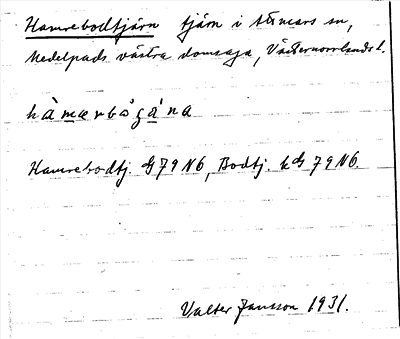 Hamrebodtjärn tjärn i Stöde sn,
Medelpads västra domsaga, Västernorrlands l.
hàmarbågána
Hamrebodtj. G 79 N6, Bodtj. kG 79 N6.
Valter Jansson 1931.